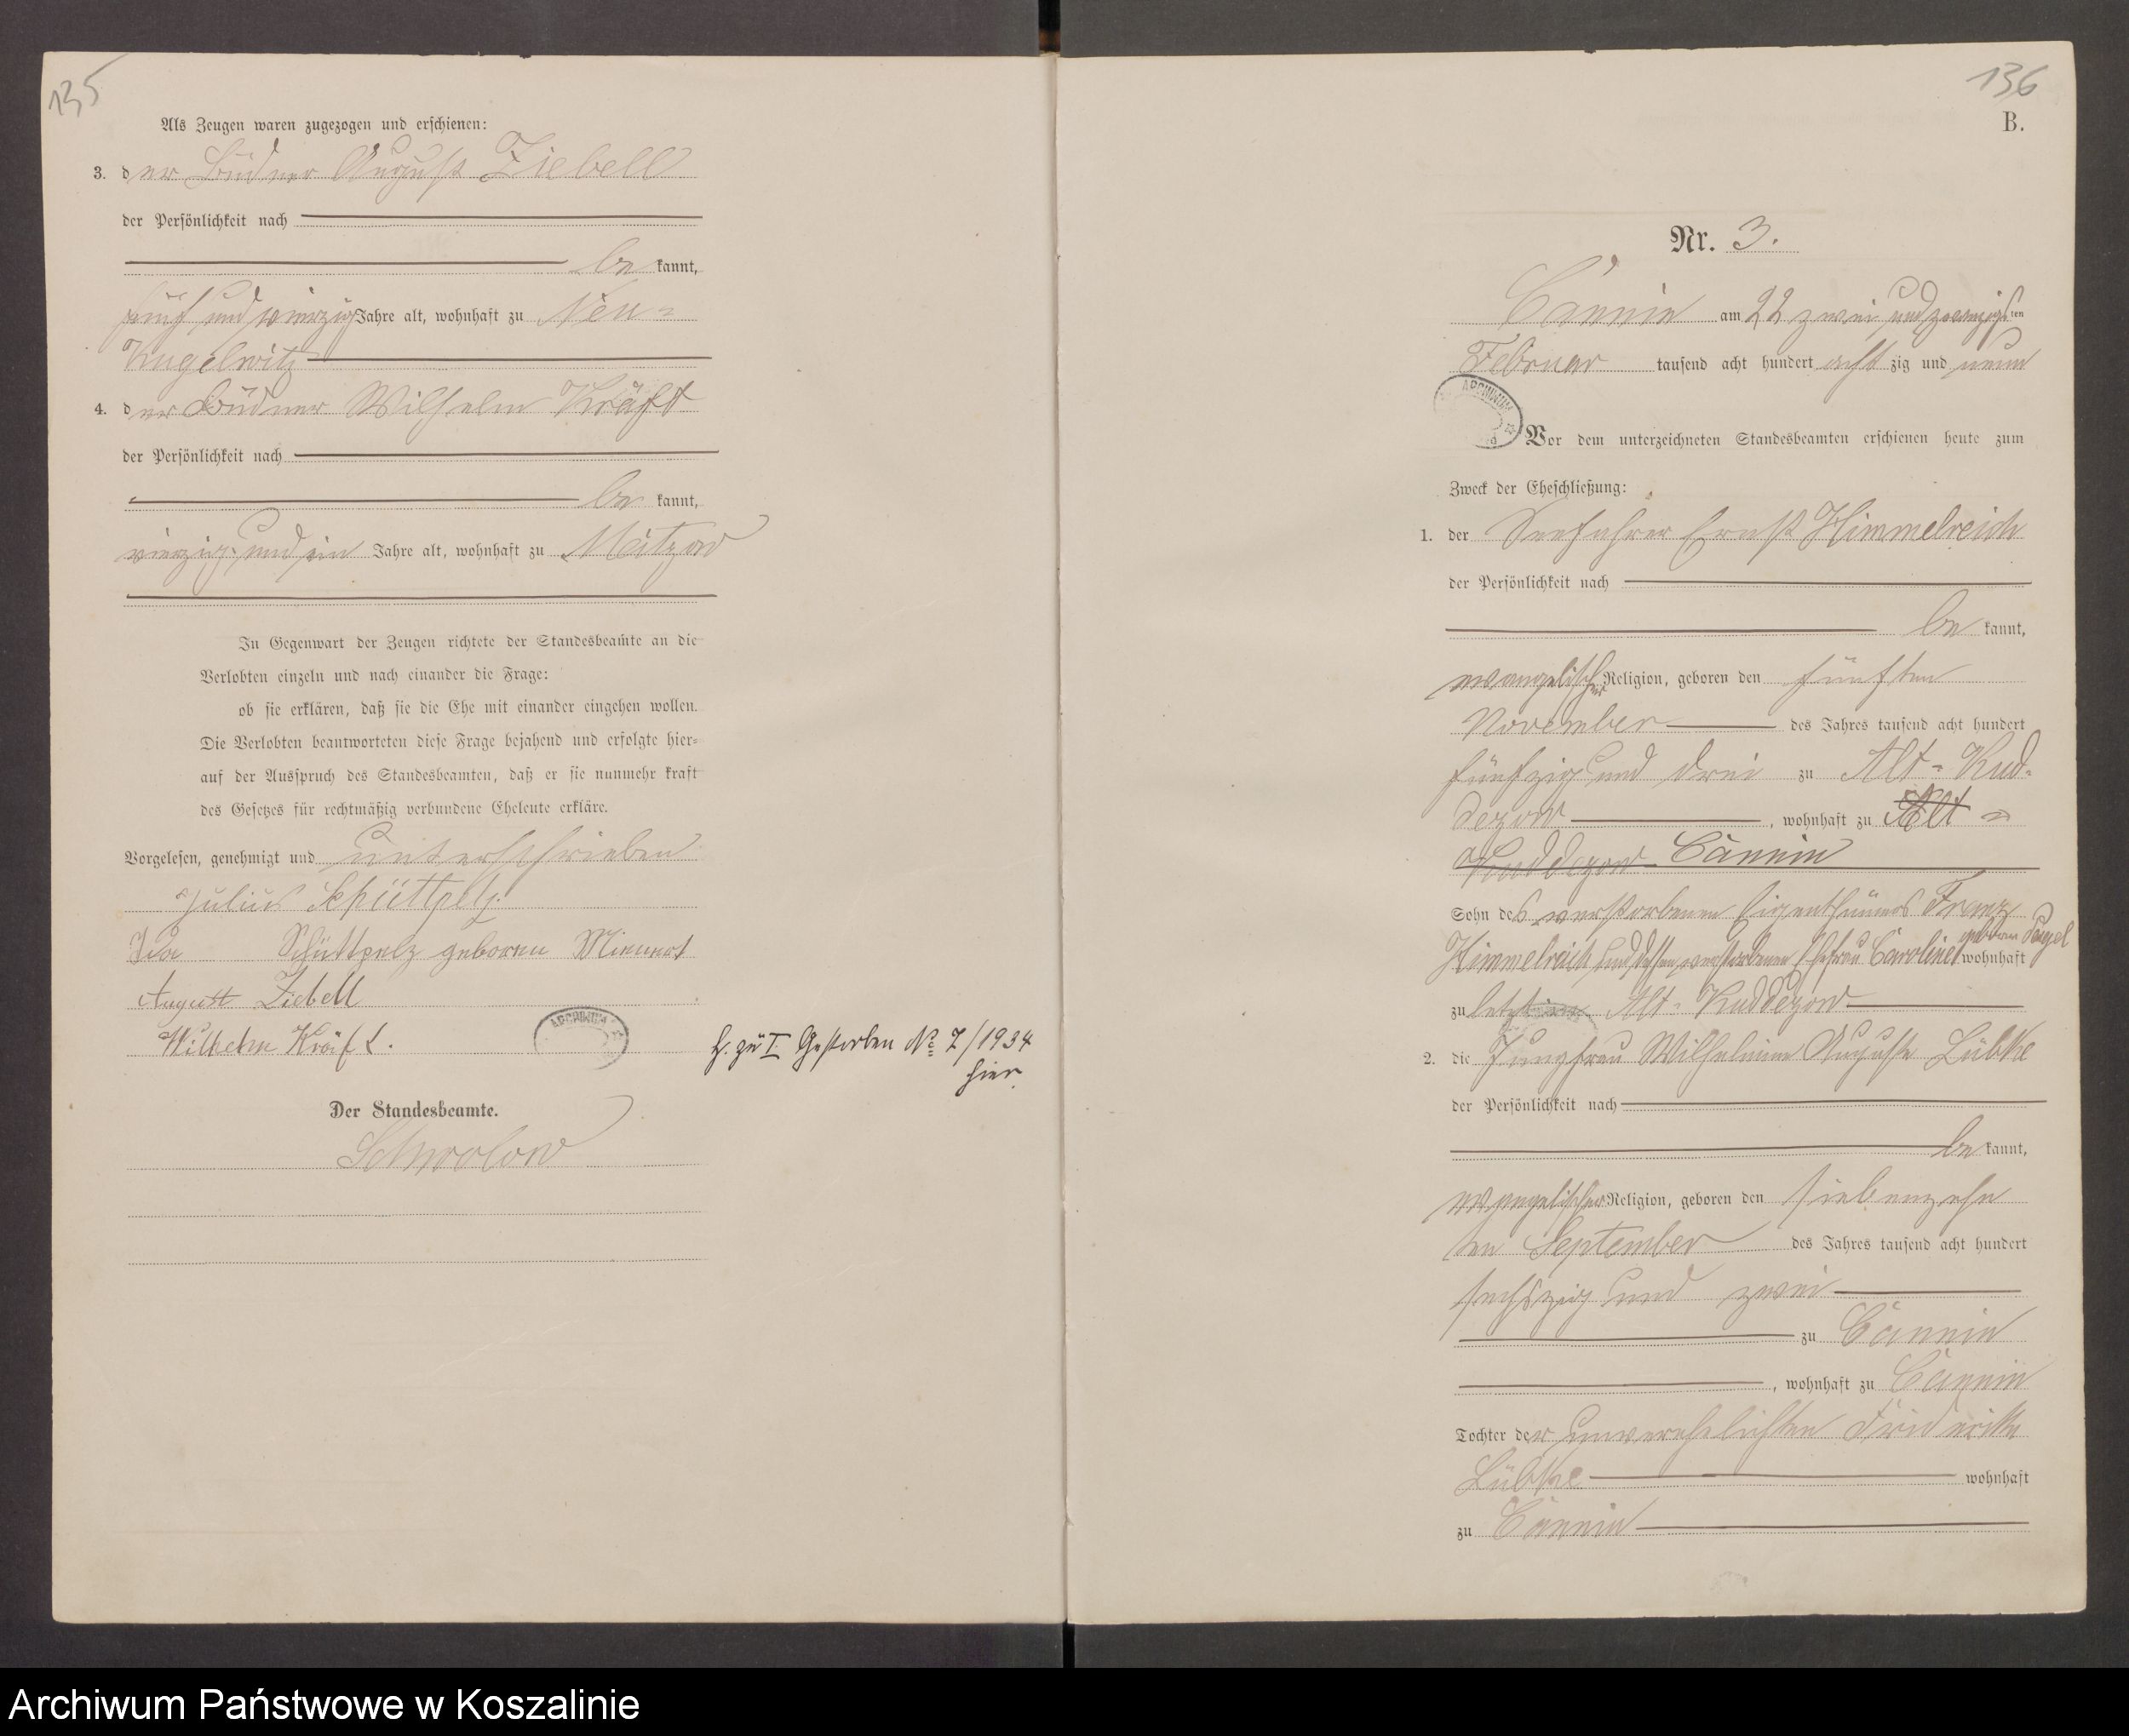 135
Als Zeugen waren zugezogen und erschienen:
3. der Büdner August Ziebell
der Persönlichkeit nach
be kannt,
fünf und vierzig Jahre alt, wohnhaft zu Neu-
Kugelwitz
4. der Büdner Wilhelm Kräft
der Persönlichkeit nach
be kannt,
vierzig und ein Jahre alt, wohnhaft zu Meitzow
In Gegenwart der Zeugen richtete der Standesbeamte an die
Verlobten einzeln und nach einander die Frage:
ob sie erklären, daß sie die Ehe mit einander eingehen wollen.
Die Verlobten beantworteten diese Frage bejahend und erfolgte hier-
auf der Ausspruch des Standesbeamten, daß er sie nunmehr kraft
des Gesetzes für rechtmäßig verbundene Eheleute erkläre.
Vorgelesen, genehmigt und unterschrieben
Julius Schüttpelz
Ida Schüttpelz geboren
August Ziebell
Wilhelm Kräft.
H. zu I. Gestorben No 7/1934
hier.
Der Standesbeamte.
Schwolow
136
B.
Nr. 3.
Cannin am 22 zwei und zwanzigsten
Februar tausend acht hundert acht zig und neun
Vor dem unterzeichneten Standesbeamten erschienen heute zum
Zweck der Eheschließung:
1. der Seefahrer Ernst Himmelreich
der Persönlichkeit nach
be kannt,
evangelischer Religion, geboren den fünften
November des Jahres tausend acht hundert
fünfzig und drei zu Alt-Kud-
dezow, wohnhaft zu Alt-
Kuddezow Cannin
Sohn des verstorbenen Eigenthümers Franz
Himmelreich und dessen verstorbenen Ehefrau Caroline geboren Pagel wohnhaft
zu Alt-Kuddezow
2. die Jungfrau Wilhelmine Auguste Lübke
der Persönlichkeit nach
be kannt,
evangelischer Religion, geboren den siebenzehn
ten September des Jahres tausend acht hundert
sechszig und zwei
zu Cannin
, wohnhaft zu Cannin
Tochter der unverehelichten Friderike
Lübke wohnhaft
zu Cannin
Archiwum Państwowe w Koszalinie